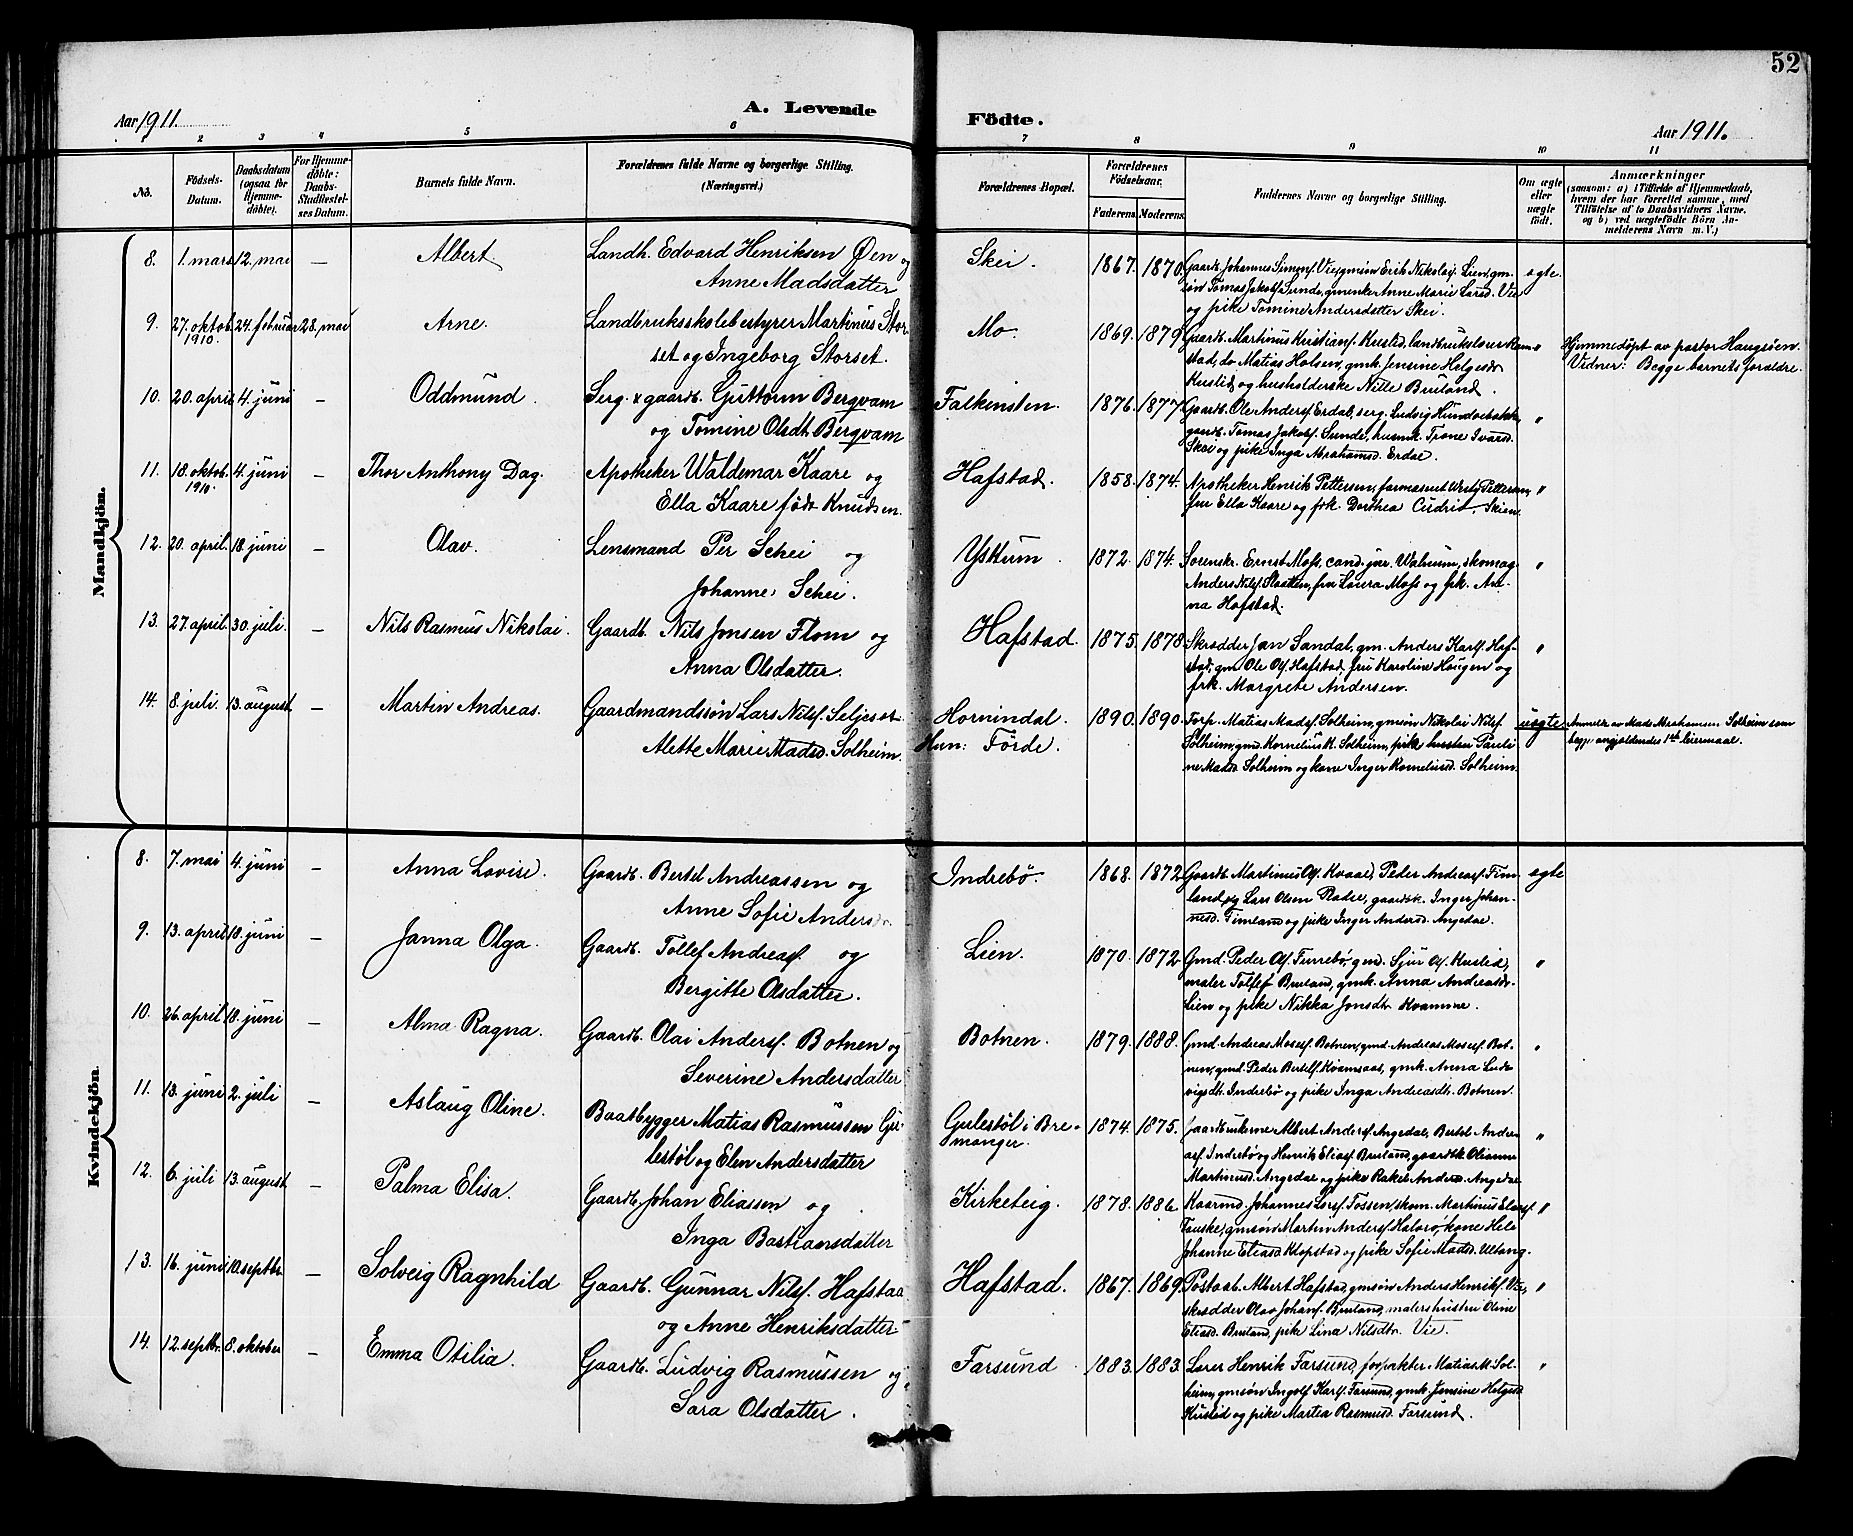 52
Aar 1911. A. Levende Födte. Aar 1911.
1 2 3 4 5 6 7 8 9 10 11
No. Födsels-Datum. Daabsdatum (ogsaa for Hjemmedöbte). For Hjemmedöbte: Daabs-Stadfæstelses Datum. Barnets fulde Navn. Forældrenes fulde Navne og borgerlige Stilling. (Næringsvei.) Forældrenes Bopæl. Forældrenes Födselsaar. Faderens. Moderens. Faddernes Navne og borgerlige Stilling. Om ægte eller uægte födt. Anmærkninger (saasom: a) i Tilfælde af Hjemmedaab, hvem der har forrettet samme, med Tilföielse af to Daabsvidners Navne, og b) ved uægtefödte Börn Anmelderens Navn m. V.)
Mandkjön.
8. 1. mars 12. mai — Albert. Landh. Edvard Henriksen Øen og Skei. 1867. 1870. Gaardb. Johannes Simonsf. Vie, gmsön Erik Nikolaisf. Lien, gm-
Anne Madsdatter sön Tomas Jakobsf. Sunde, gmenke Anne Marie Larsd. Vie ægte.
og pike Tomine Andersdatter Skei.
9. 27. oktob. 1910. 24. februar 28. mai Arne. Landbruksskolebestyrer Martinus Stor- Mo. 1869. 1879. Gaardb. Martinus Kristiansf. Kusled, landbrukslærer Ram- "
set og Ingeborg Storset. stad, do Matias Holsen, gmk. Jensine Helgesdr.
Kusled og husholderske Nille Bruland.
Hjemmedöpt av pastor Haugsöen.
Vidner: Begge barnets forældre.
10. 20. april 4. juni — Oddmund. Serg. & gaardb. Guttorm Bergvam Falkensten. 1876. 1877. Gaardb. Ole Andersf. Erdal, serg. Ludvig Hundvebakke "
og Tomine Olsdt. Bergvam gaardb. Tomas Jakobsf. Sunde, husmk. Trone Ivarsd.
Skei og pike Inga Abrahamsd. Erdal.
11. 18. oktob. 1910. 4. juni — Thor Anthony Dag. Apotheker Waldemar Kaare og Hafstad. 1858. 1874. Apotheker Henrik Pettersen, farmaseut Pettersen, "
Ella Kaare födt Knudsen. fru Ella Kaare og frk. Dorthea Skien.
12. 20. april. 18. juni — Olav. Lensmand Per Schei og Ysttum. 1872. 1874. Sorenskr. Ernst Mofs, cand. jur. Walnum, skomag. "
Johanne Schei. Anders Nilsf. Slaatten, fru Laura Mofs og frk. An-
na Hafstad.
13. 27. april. 30. juli. — Nils Rasmus Nikolai. Gaardb. Nils Jonsen Flom og Hafstad. 1875. 1878. Skrædder Jan Sandal, gm. Anders Karlsf. Haf- "
Anna Olsdatter. stad, gm. Ole Olsf. Hafstad, fru Karoline Haugen og
frk. Margrete Andersen.
14. 8. juli. 13. august — Martin Andreas. Gaardmandssön Lars Nilsf. Seljeset Hornindal. 1890. 1890. Forp. Matias Madsf. Solheim, gmsön Nikolai Nilsf. uægte
Alette Marie Madsd. Solheim. Hun: Förde. Solheim, gmd. Kornelius M. Solheim, pike hustru Pauli-
ne Madsd. Solheim og kone Inger Korneliusd. Solheim.
Anmeldt av Mads Abrahamsen Solheim som
begges angjældendes 1ste leiermaal.
Kvindekjön.
8. 7. mai 4. juni — Anna Lovise. Gaardb. Bertel Andreassen og Indrebö. 1868. 1872. Gaardb. Martinus Olsf. Kvaal, Peder Andreasf. Tim- ægte
Anne Sofie Andersdr. land og Lars Olsen Radie, gaardsk. Inger Johan-
nesd. Timland og pike Inger Andersd. Angedal.
9. 13. april 10. juni — Janna Olga. Gaardb. Tollef Andreasf. og Lien. 1870. 1872. Gmd. Peder Olsf. Furebö, gmd. Sjur Olsf. Kusled, "
Bergitte Olsdatter. maler Tollef Bruland, gmk. Anna Andreasdr.
Lien og pike Nikka Jonsdtr. Kvamme.
10. 26. april 18. juni — Alma Ragna. Gaardb. Olai Andersf. Botnen og Botnen. 1879. 1888. Gmd. Andreas Mosesf. Botnen, gmd. Andreas Mosesf. Bot- "
Severine Andersdatter nen, gmd. Peder Bertelsf. Kvamsaas, gmk. Anna Lud-
vigsdt. Indrebö og pike Inga Andreasdt. Botnen.
11. 13. juni 2. juli — Aslaug Oline. Baatbygger Matias Rasmussen Gu- Gulestöl i Bre- 1874. 1875. Gaardbrukerne Albert Andersf. Angedal, Bertel Andre- "
lestöl og Elen Andersdatter manger. asf. Indrebö og Henrik Eliasf. Bruland, gaardsk. Olianne
Martinusd. Angedal og pike Rakel Andersd. Angedal.
12. 6. juli 13. august — Palma Elisa. Gaardb. Johan Eliassen og Kirketeig. 1878. 1886. Kaarmd. Johannes Larsf. Fossen, skom. Martinus Eliasf. "
Inga Bastiansdatter Tauske, gmsön Martin Andersf. Halvor, kone Hele
Johanne Eliasd. Klopstad og pike Sofie Madsd. Ullang.
13. 16. juni 10. septbr. — Solveig Ragnhild Gaardb. Gunnar Nilsf. Hafstad Hafstad. 1867. 1869. Postaab. Albert Hafstad, gmsön Anders Henriksf. Vie, "
og Anne Henriksdatter skrædder Olav Johansf. Bruland, malershustru Oline
Eliasd. Bruland, pike Lina Nilsdtr. Vie.
14. 12. septbr. 8. oktober — Emma Otilia. Gaardb. Ludvig Rasmussen og Farsund 1883. 1883. Lærer Henrik Farsund, forpakter Matias M. Sol- "
Sara Olsdatter. heim, gmsön Ingolf Karlsf. Farsund, gmk. Jensine Helgesd.
Kusled og pike Martea Rasmusd. Farsund.